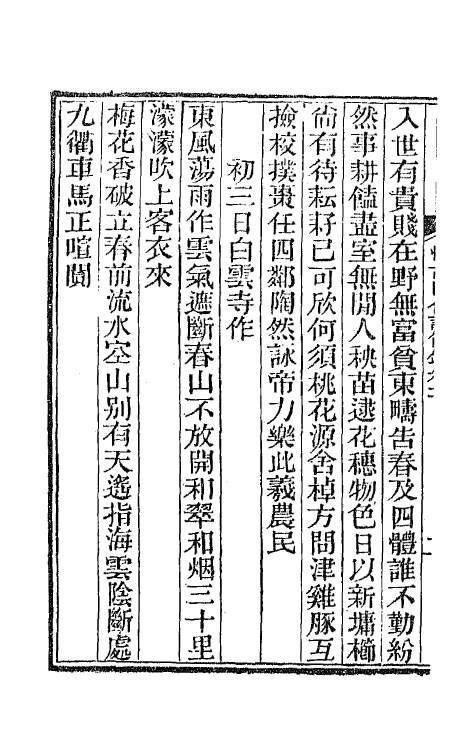 入世有貴賤在野無富貧東疇告春及四體誰不勤紛
然事耕饁盡室無閒人秧苗逮花穗物色日以新墉櫛
尙有待耘耔已可欣何須桃花源舍棹方問津雞豚互
撿校撲棗任四鄰陶然詠帝力樂此義農民
初三日白雲寺作
東風蕩雨作雲氣遮斷春山不放開和翠和烟三十里
濛濛吹上客衣來
梅花香破立春前流水空山别有天遙指海雲陰斷處
九衢車馬正喧闐